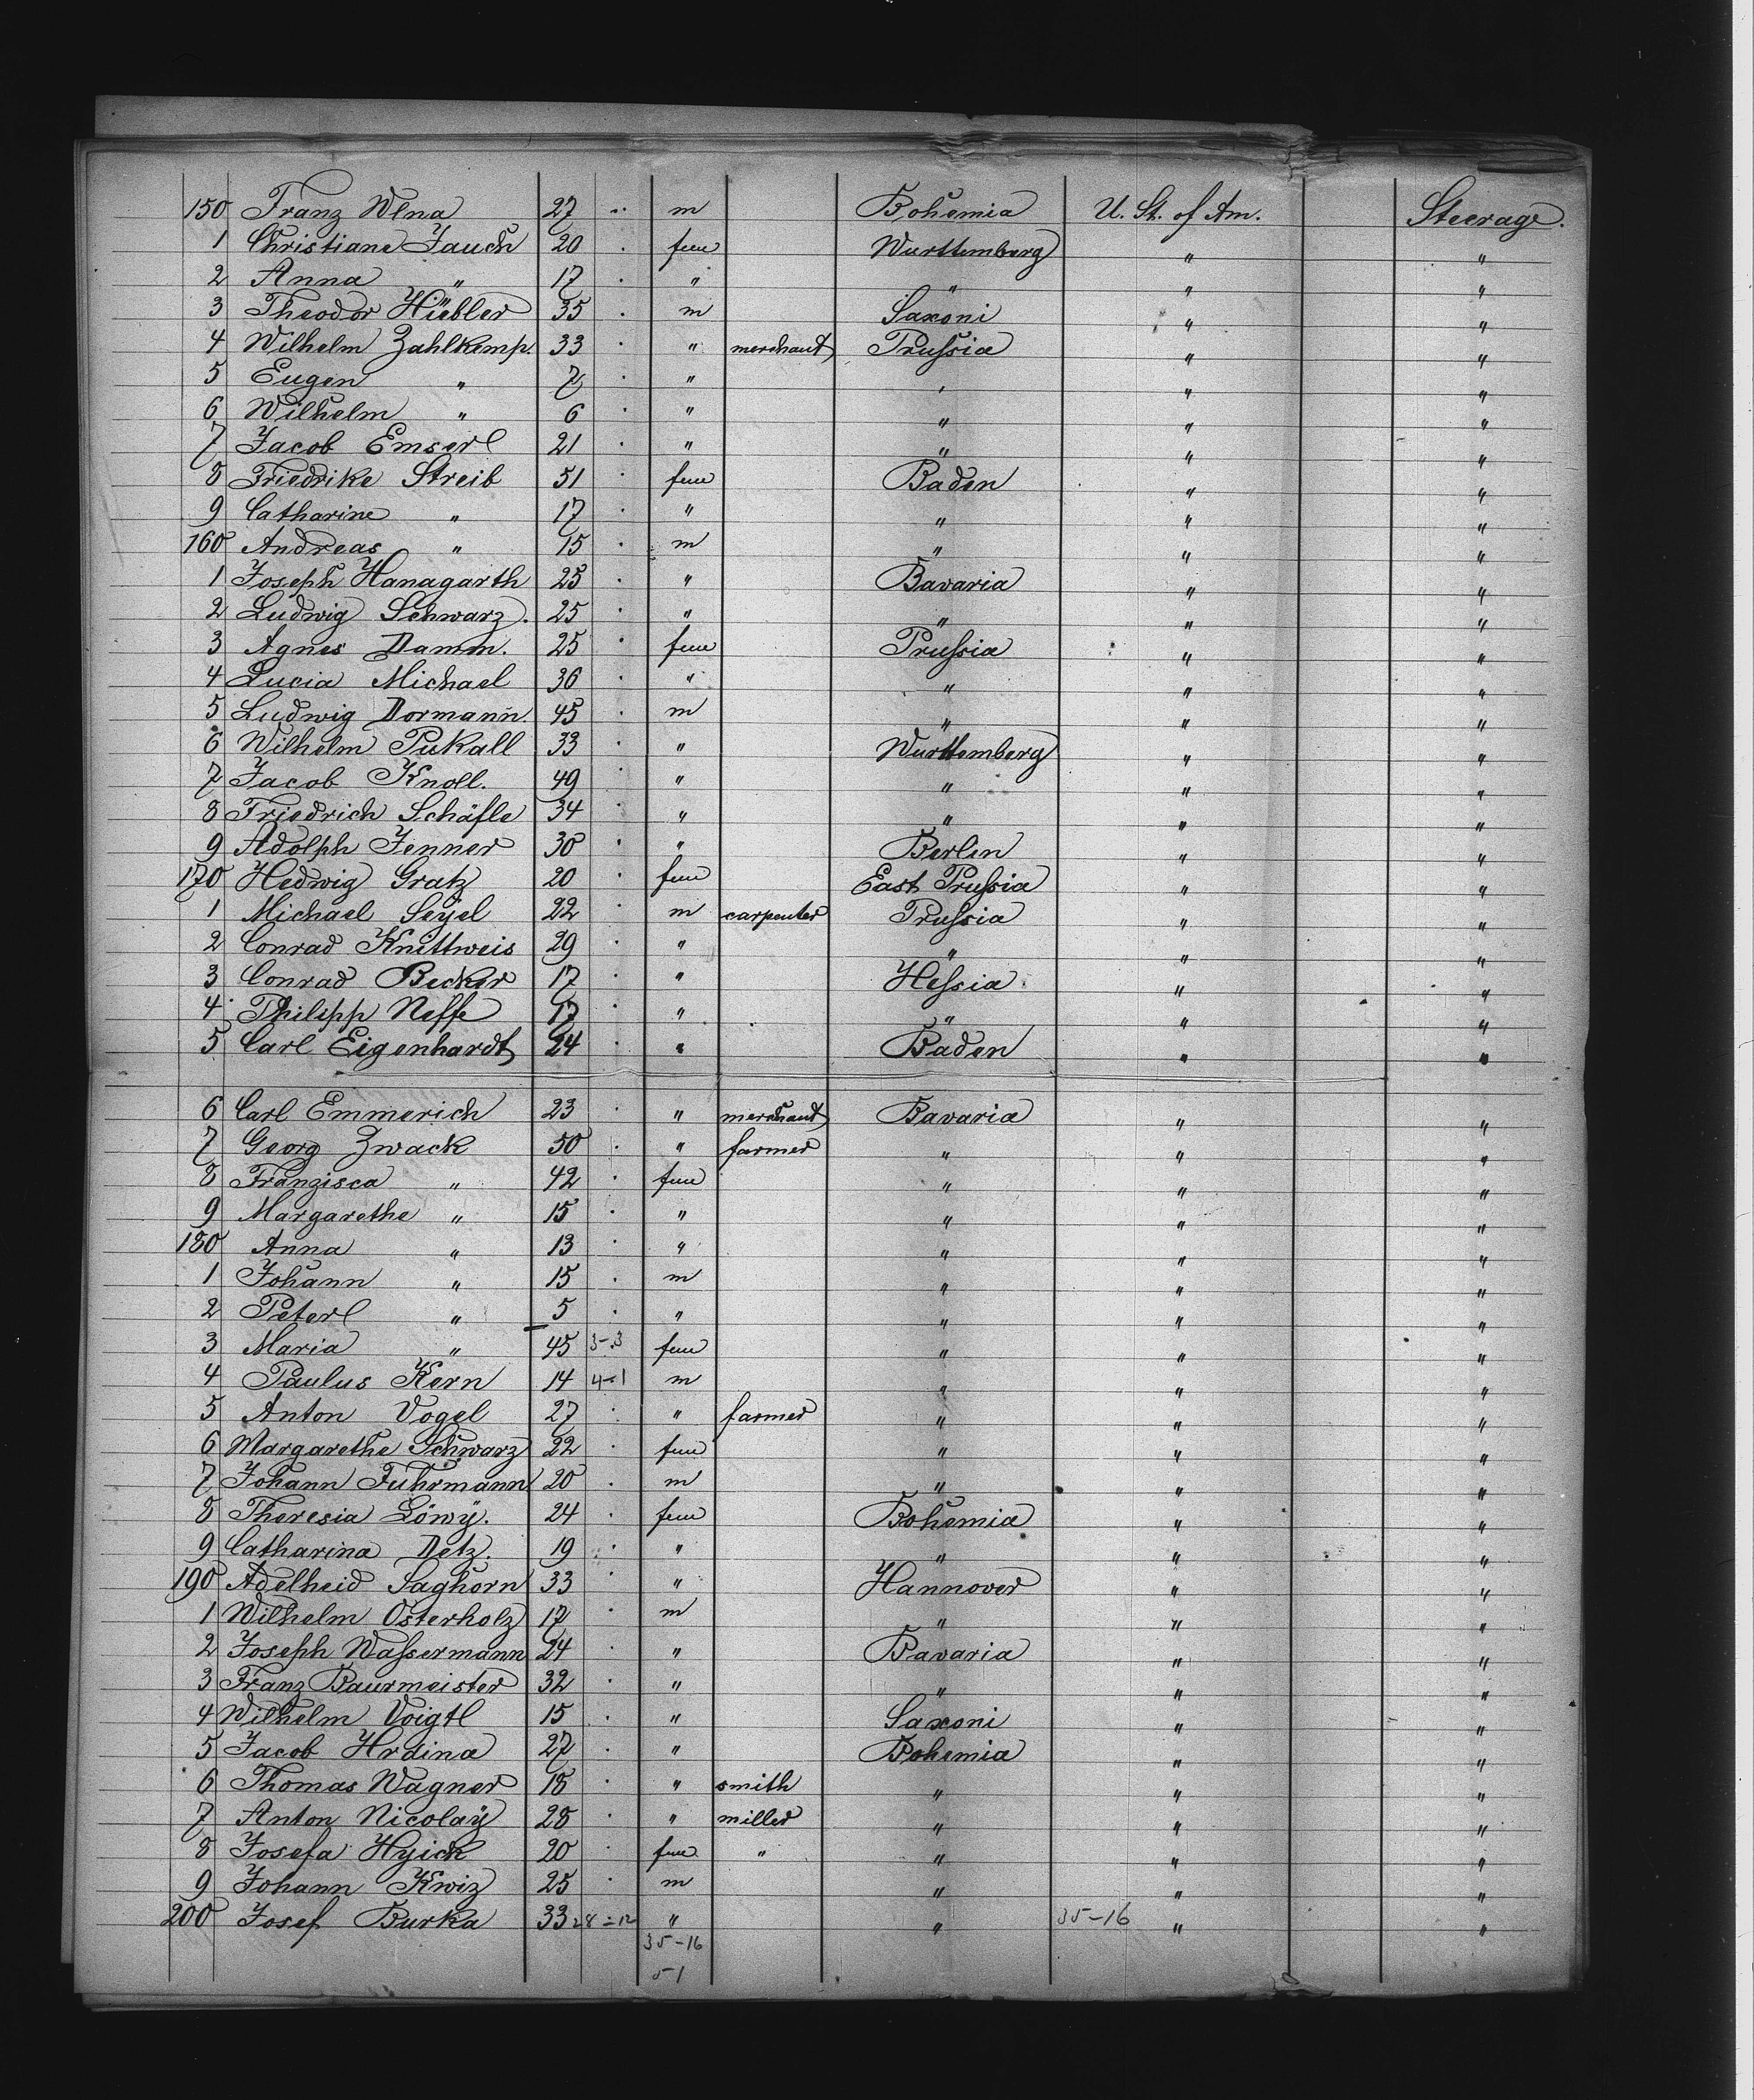 150 Franz Wlna 27 m Bohemia U. St. of Am. Steerage.
1 Christiane Jauch 20 fem Wurttemberg " "
2 Anna " 17 " " " "
3 Theodor Hübler 35 m Saxoni " "
4 Wilhelm Zahlkemp. 33 " merchant Prussia " "
5 Eugen " 7 " " " "
6 Wilhelm " 6 " " " "
7 Jacob Emserl 21 " " " "
8 Friedrike Streib 51 fem Baden " "
9 Catharine " 17 " " " "
160 Andreas " 15 m " " "
1 Joseph Hanagarth 25 " Bavaria " "
2 Ludwig Schwarz. 25 " " " "
3 Agnes Damm. 25 fem Prussia " "
4 Lucia Michael 36 " " " "
5 Ludwig Dormann. 45 m " " "
6 Wilhelm Pukall 33 " Wurttemberg " "
7 Jacob Knoll. 49 " " " "
8 Friedrich Schäfle 34 " " " "
9 Adolph Jenner 30 " Berlin " "
170 Hedwig Gratz 20 fem East Prussia " "
1 Michael Seÿel 22 m carpenter Prussia " "
2 Conrad Knittweis 29 " " " "
3 Conrad Becker 17 " Hessia " "
4 Philipp Neffe 17 " " " "
5 Carl Eigenhardt 24 " Baden " "
6 Carl Emmerich 23 " merchant Bavaria " "
7 Georg Zwack 50 " farmer " " "
8 Franzisca " 42 fem " " "
9 Margarethe " 15 " " " "
180 Anna " 13 " " " "
1 Johann " 15 m " " "
2 Peterl " 5 " " " "
3 Maria " 45 3-3 fem " " "
4 Paulus Kern 14 4-1 m " " "
5 Anton Vogel 27 " farmer " " "
6 Margarethe Schwarz 22 fem " " "
7 Johann Fuhrmann 20 m " " "
8 Theresia Löwÿ. 24 fem Bohemia " "
9 Catharina Detz. 19 " " " "
190 Adelheid Saghorn 33 " Hannover " "
1 Wilhelm Osterholz 17 m " " "
2 Joseph Wassermann 24 " Bavaria " "
3 Franz Baurmeister 32 " " " "
4 Wilhelm Voigtl 15 " Saxoni " "
5 Jacob Hrdina 27 " Bohemia " "
6 Thomas Wagner 18 " smith " " "
7 Anton Nicolaÿ 28 " miller " " "
8 Josefa Hyick 20 fem " " " "
9 Johann Kwiz 25 m " " "
200 Josef Burka 33 28-12 " " 35-16 " "
35-16
5-1